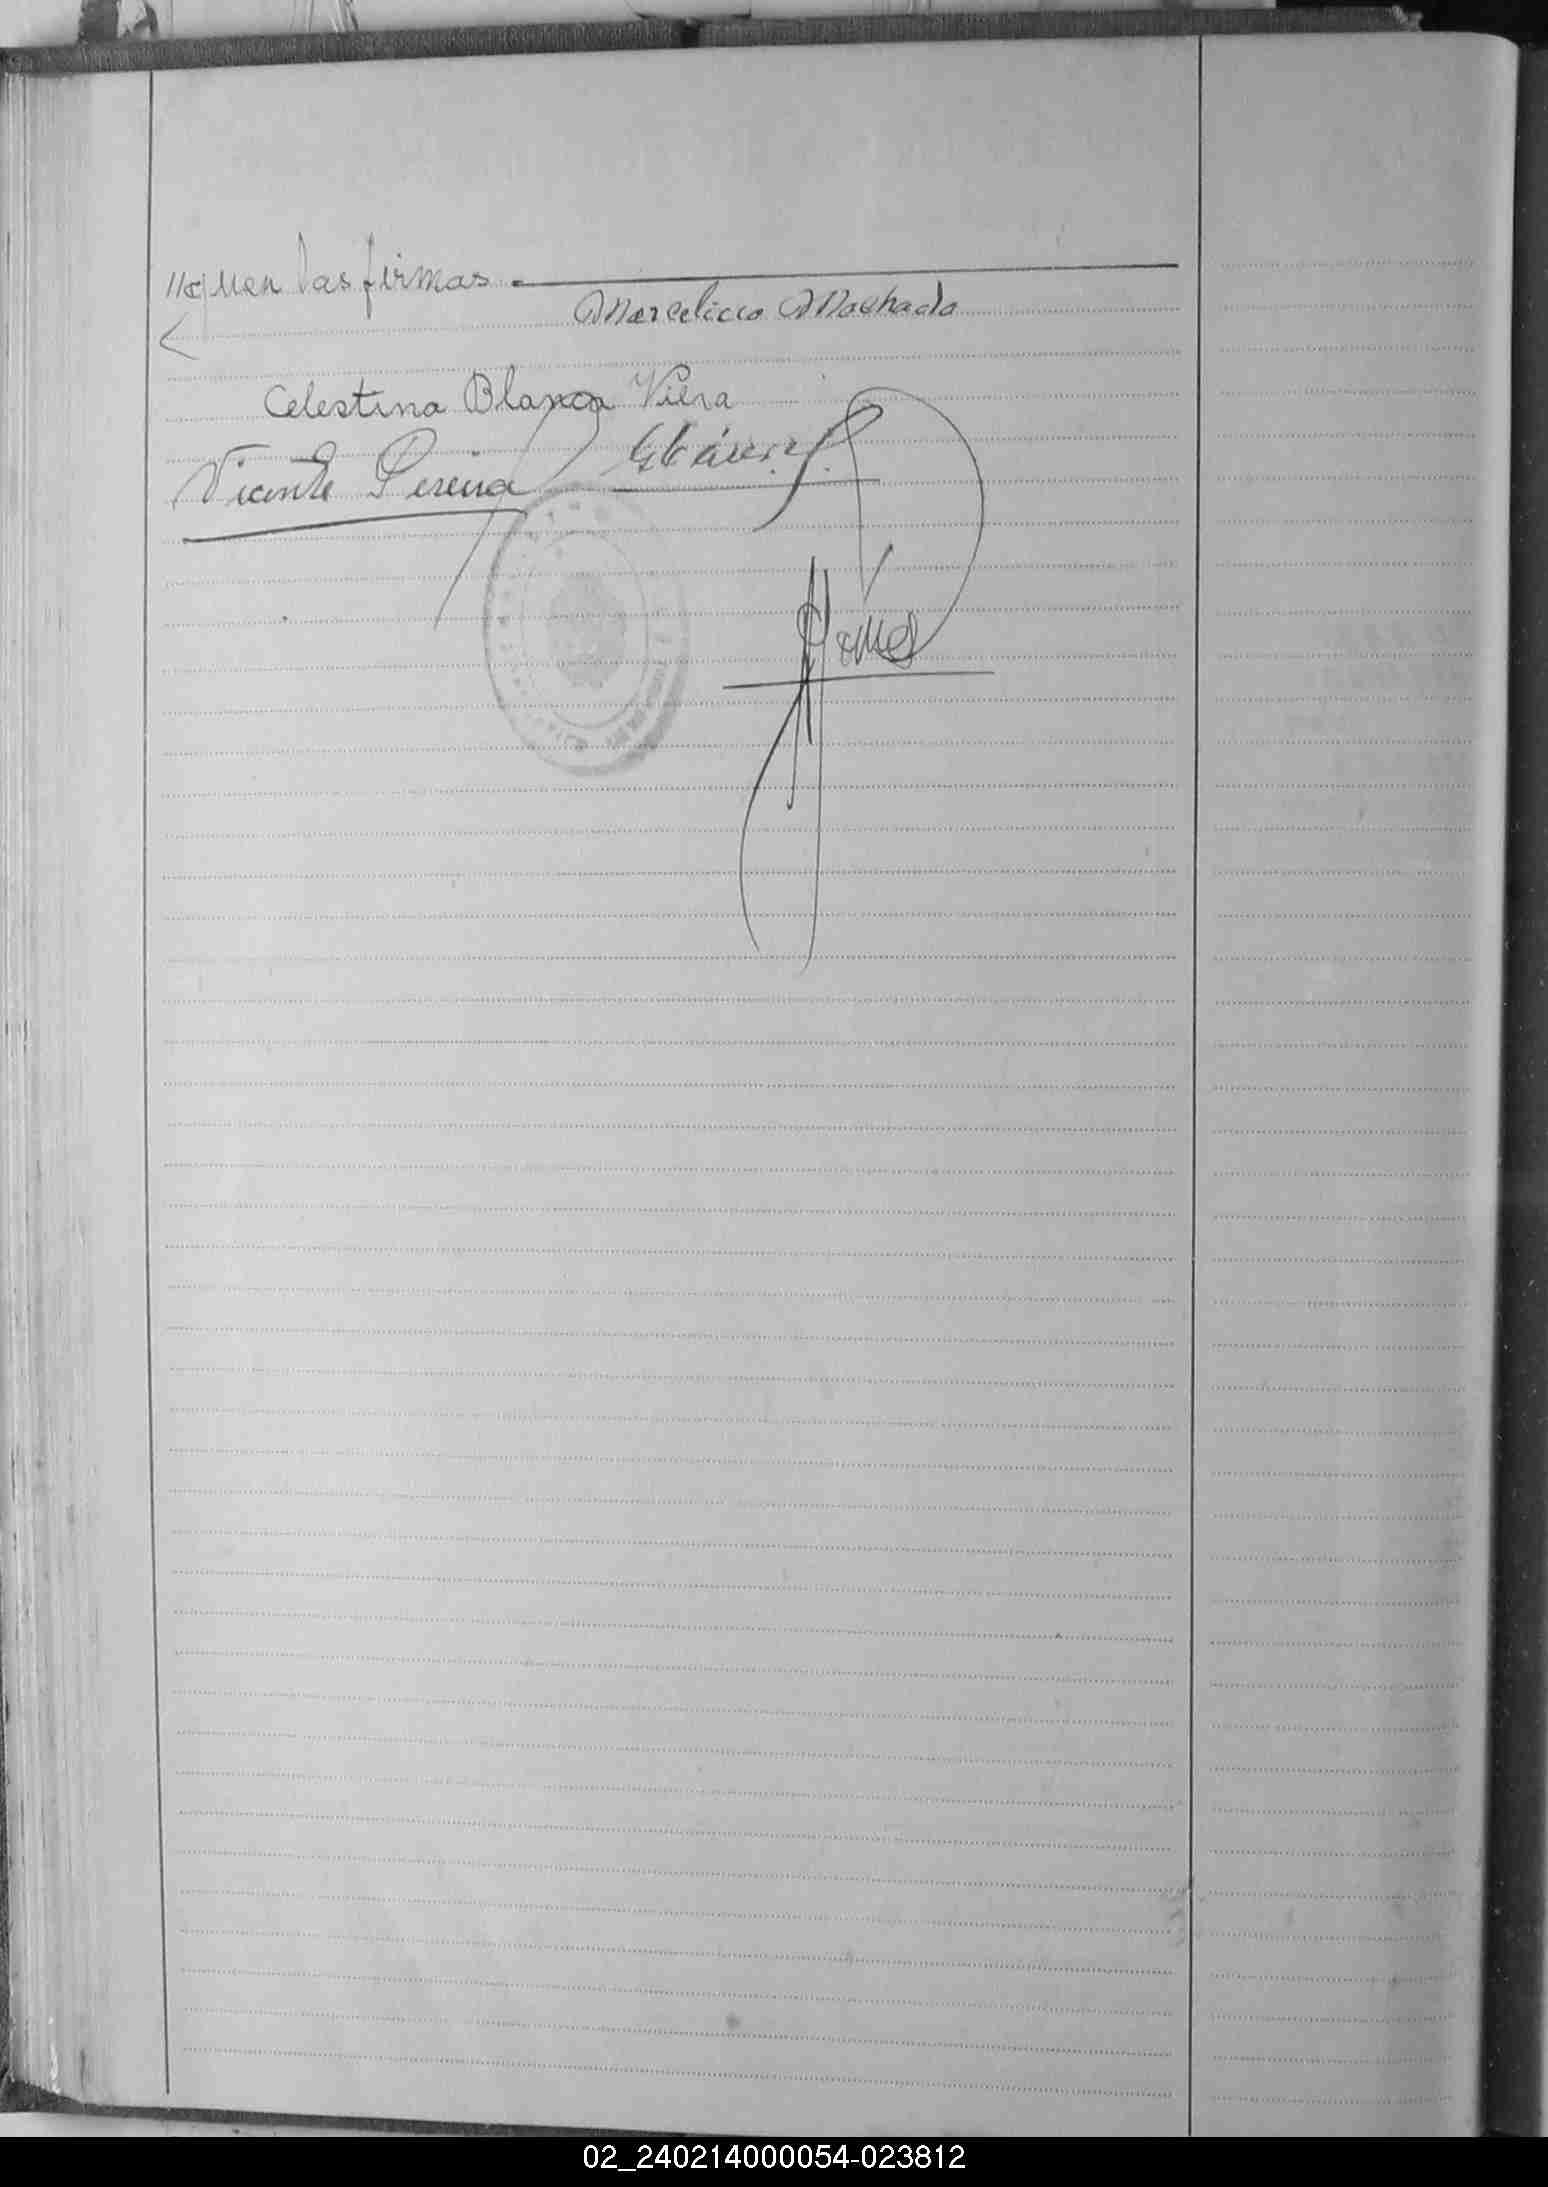 //guen las firmas.
Marcelino Machado
Celestina Blanca Viera
Vicente Pereira
Gómez
02_240214000054-023812